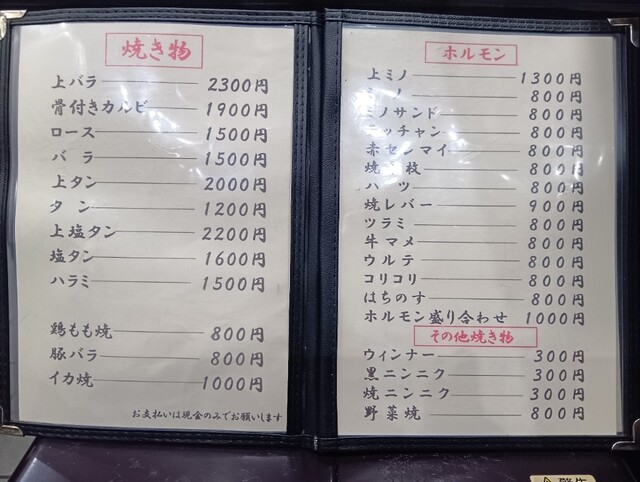 焼き物
上バラ 2300円
骨付きカルビ 1900円
ロース 1500円
バラ 1500円
上タン 2000円
タン 1200円
上塩タン 2200円
塩タン 1600円
ハラミ 1500円
鶏もも焼 800円
豚バラ 800円
イカ焼 1000円
お支払いは現金のみでお願いします
ホルモン
上ミノ 1300円
ミノ 800円
ミノサンド 800円
ッチャン 800円
赤センマイ 800円
焼 枚 800円
ハツ 800円
焼レバー 900円
ツラミ 800円
牛マメ 800円
ウルテ 800円
コリコリ 800円
はちのす 800円
ホルモン盛り合わせ 1000円
その他焼き物
ウィンナー 300円
黒ニンニク 300円
焼ニンニク 300円
野菜焼 800円